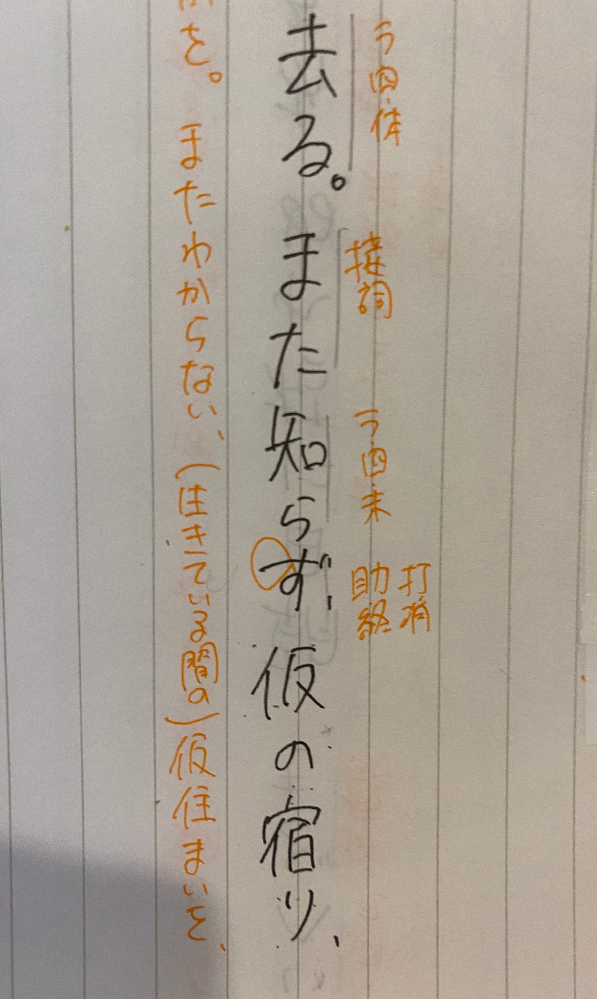 ラ四・体
接詞
ラ四未
打消
助終
去る。また知らず、仮の宿り、
を。またわからない、(生きている間の)仮住まいを、